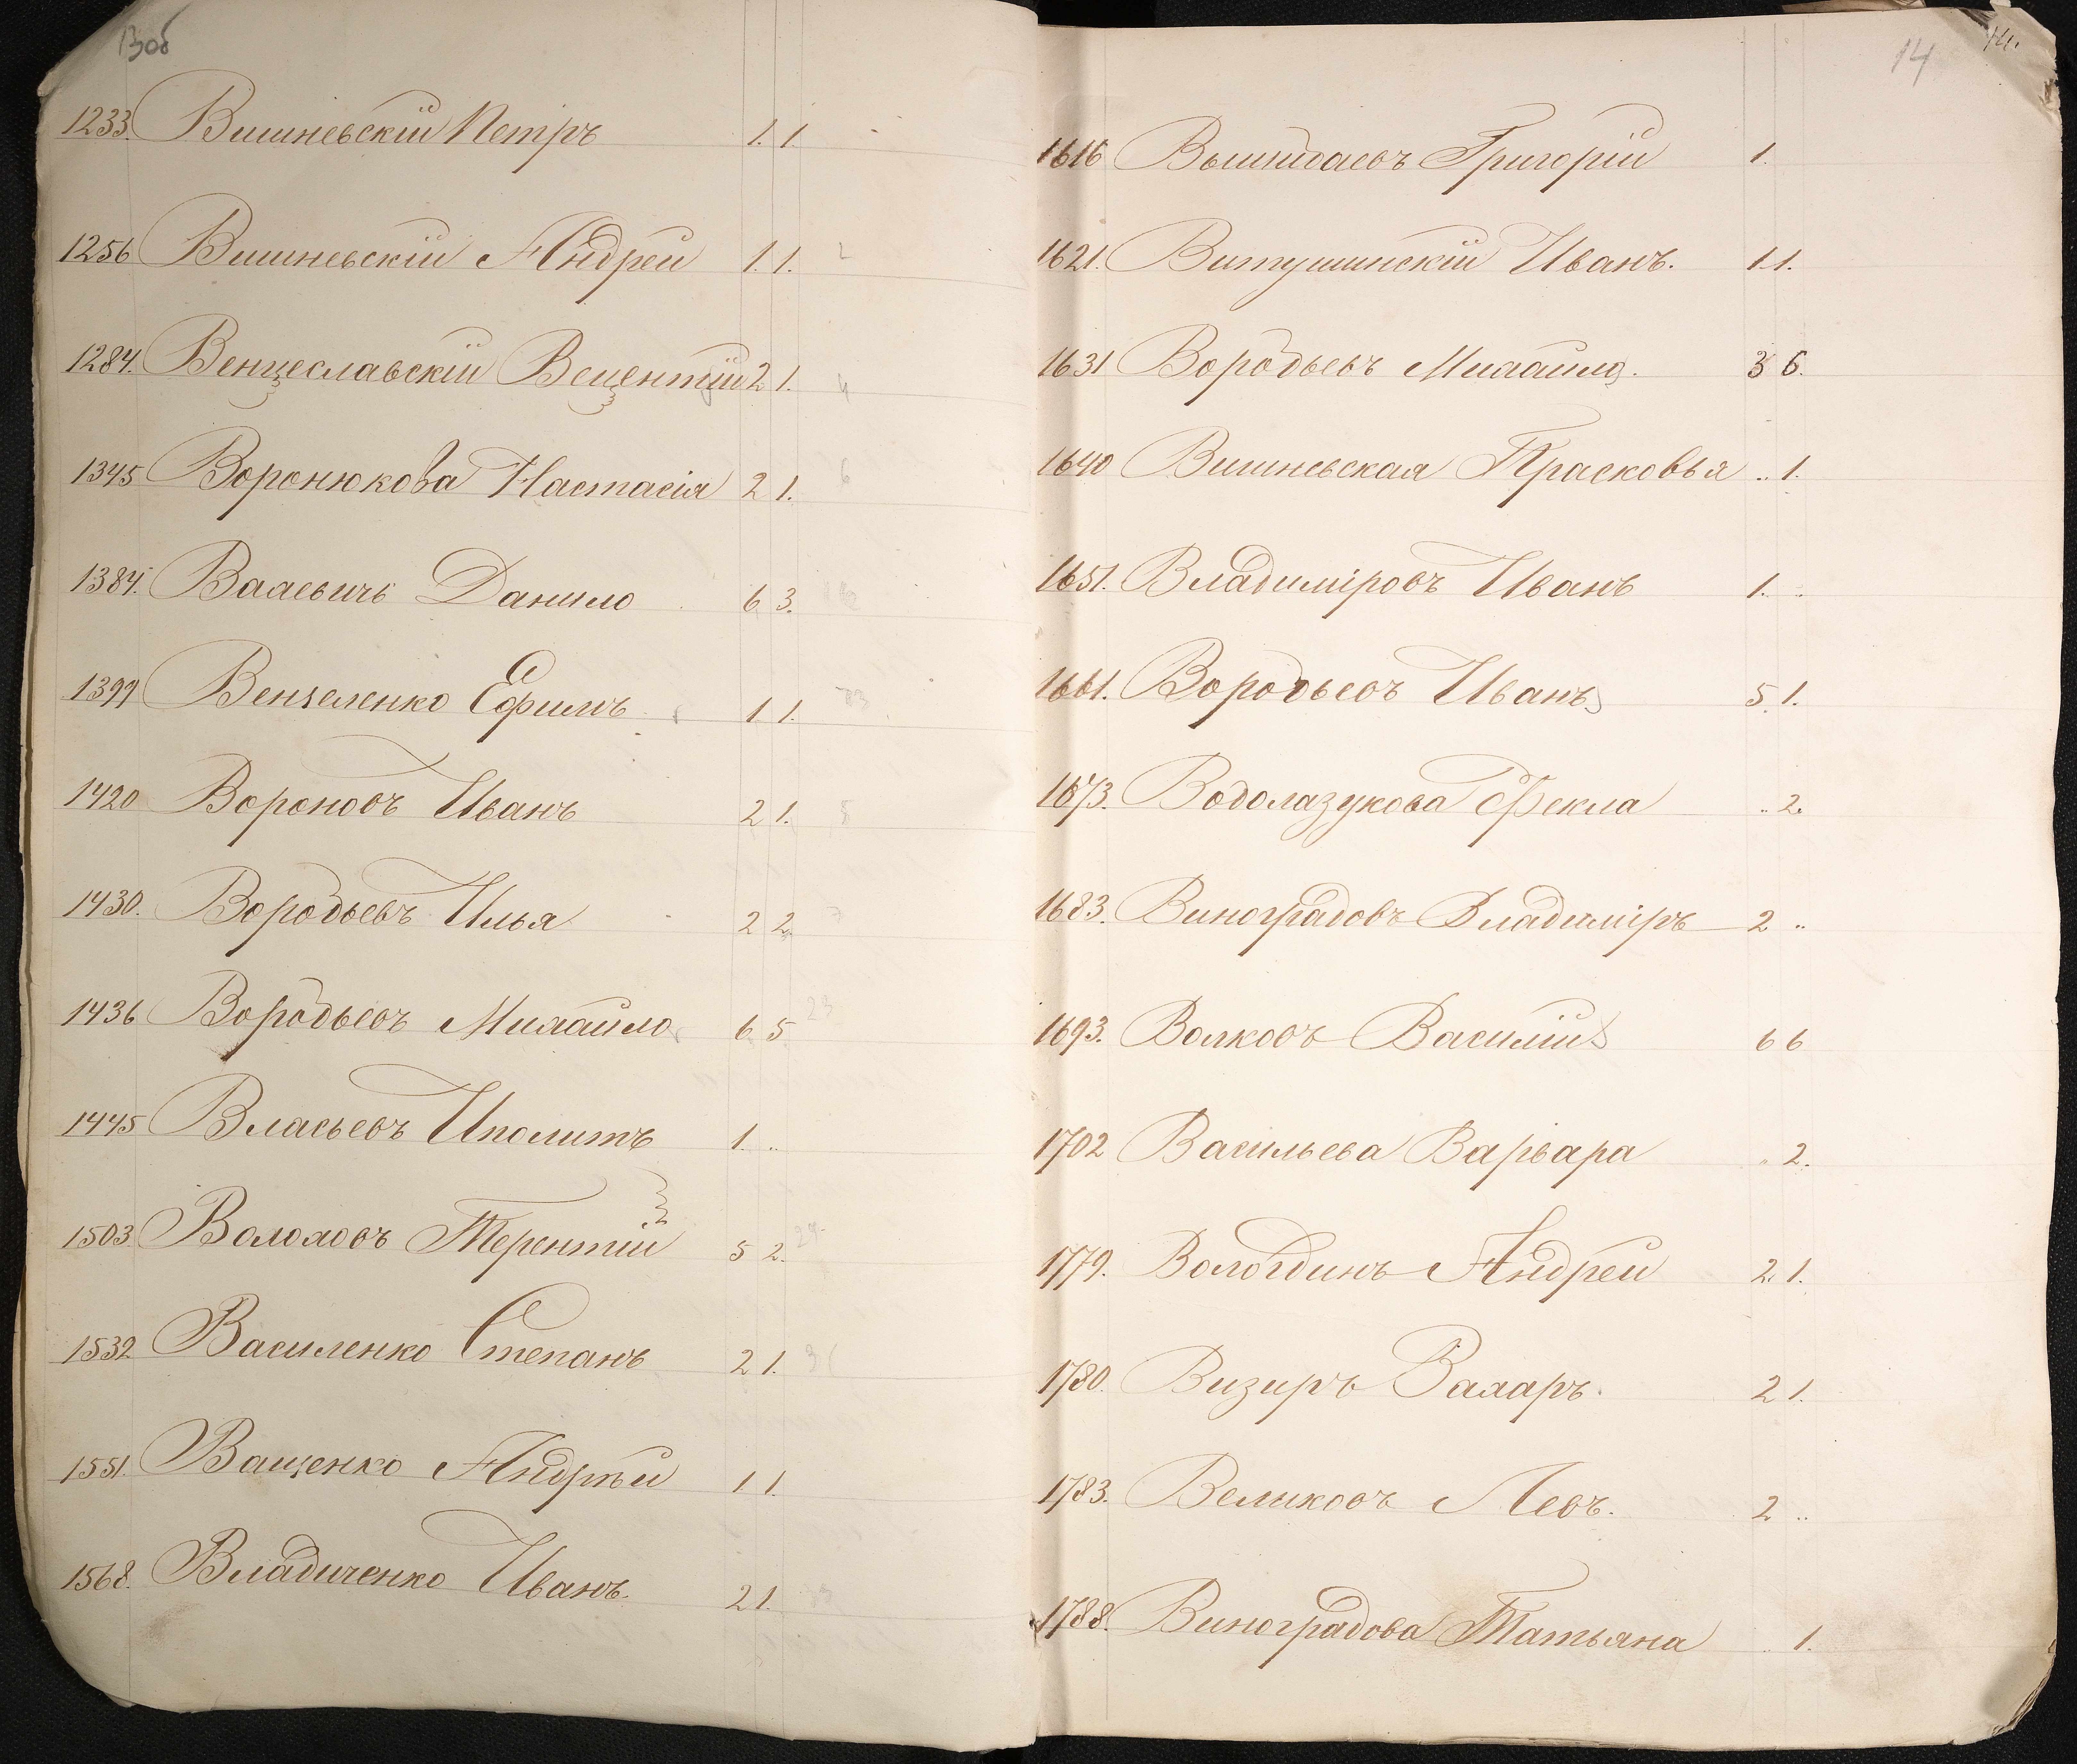 13об
1233. Вишневскій Петръ 1. 1
1256 Вишневскій Андрей 1. 1. 2
1284. Венцеславскій Вецентій 2 1. 4
1345 Воронюкова Настасія 2 1. 6
1384. Вахевичъ Данило 6 3.
1399 Вензеленко Ефимъ 1 1. 13
1420 Вороновъ Иванъ 2 1. 8
1430. Воробьевъ Илья 2 2. 7
1436 Воробьевъ Михайло 6 5 23
1445 Власьевъ Иполитъ 1. ..
1503. Волоховъ Терентій 5 2. 29
1532 Василенко Степанъ 2 1. 3
1551. Ващенко Андрѣй 1 1.
1568. Владиченко Иванъ. 2 1.
14 14.
1616 Григорій 1.
1621. Витушинскій Иванъ. 1 1.
1631 Воробьевъ Михайло. 3 6.
1640 Вишневская Прасковья .. 1.
1651. Владиміровъ Иванъ 1. ..
1661. Воробьевъ Иванъ 5. 1.
1673. Водолазукова Фекла .. 2.
1683. Виноградовъ Владиміръ 2 ..
1693. Волковъ Василій 6 6
1702 Васильева Варвара .. 2.
1779. Вологдинъ Андрей 2. 1.
1780. Визиръ Захаръ. 2 1.
1783. Великовъ Левъ. 2 ..
1788. Виноградова Татьяна .. 1.